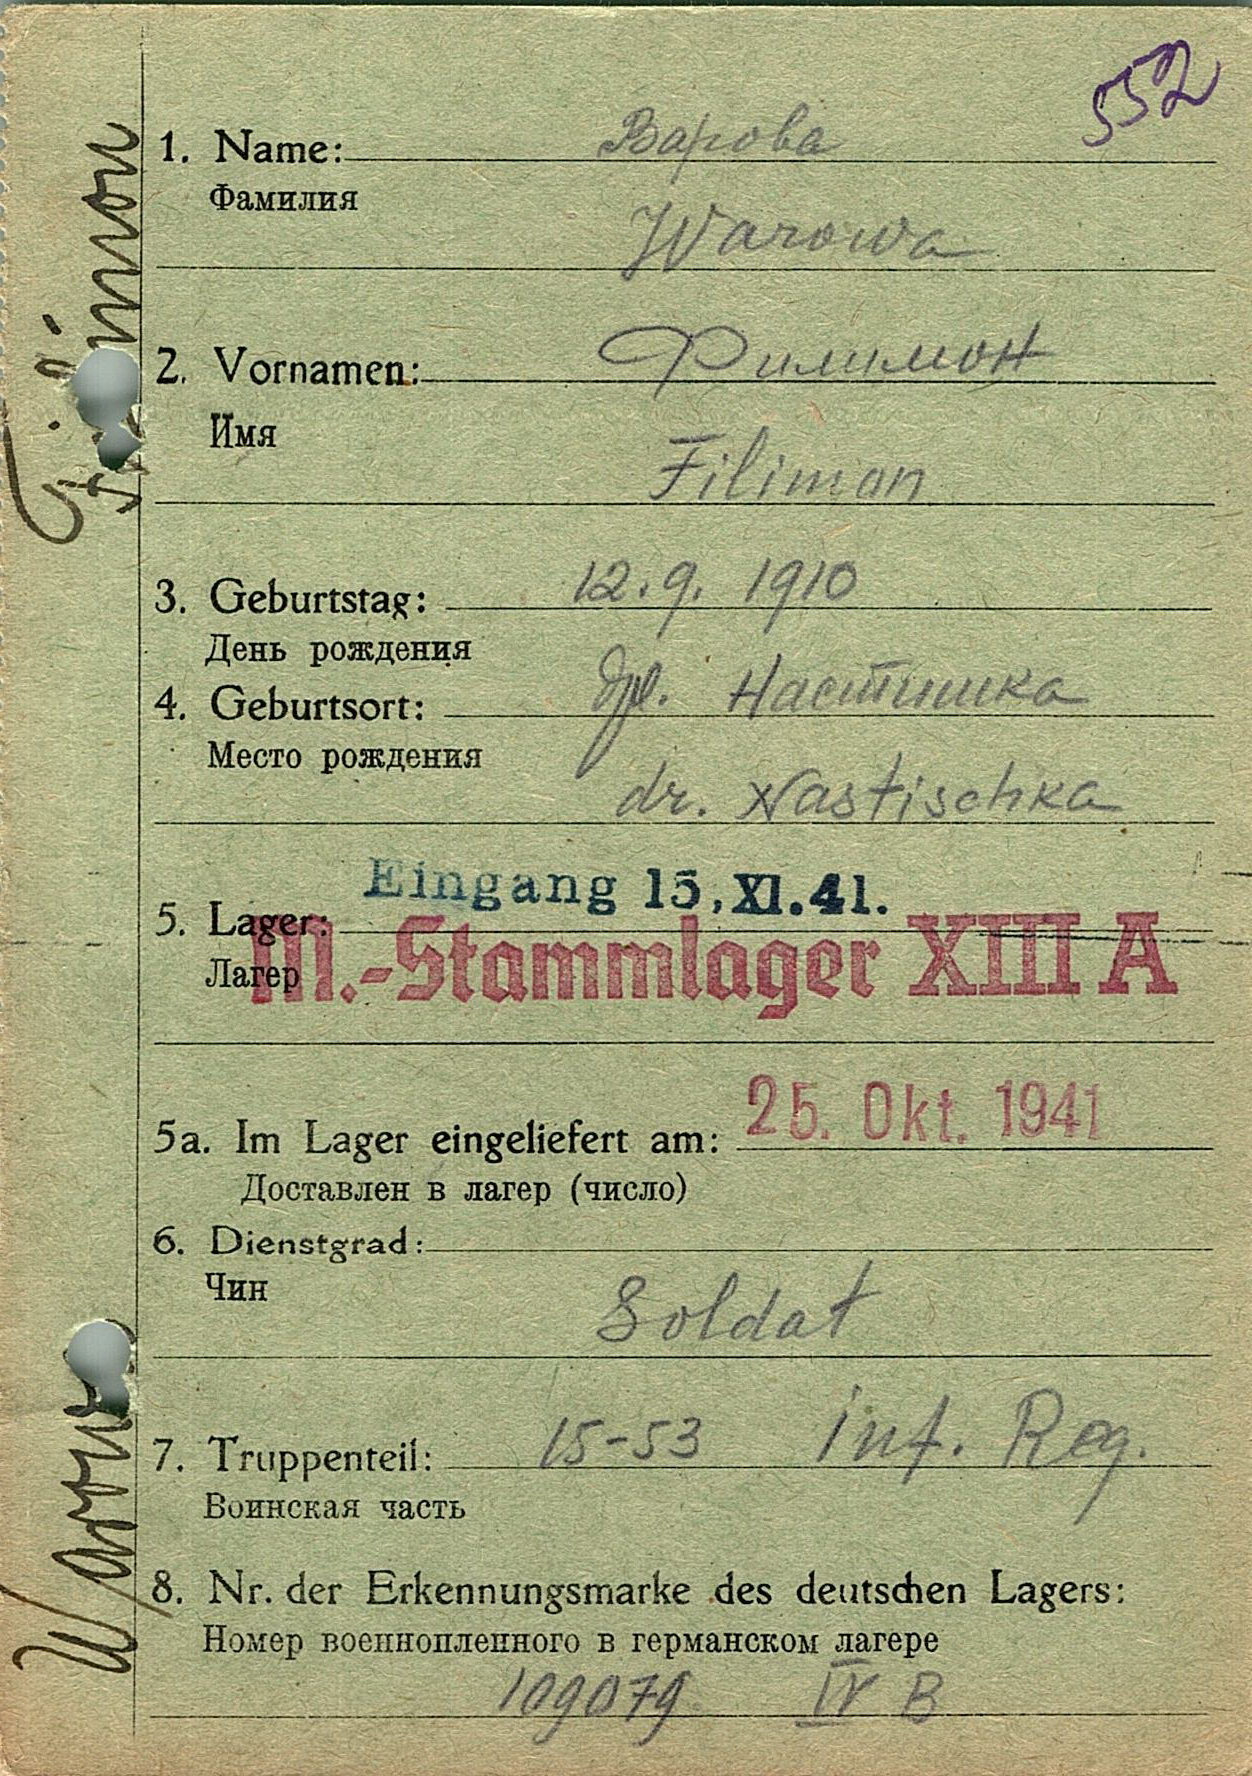 552
1. Name: Варова
Фамилия
Warowa
2. Vornamen: Филимон
Имя
Filimon
3. Geburtstag: 12.9. 1910
День рождения
4. Geburtsort: др. Настишка
Место рождения
dr. Nastischka
Eingang 15. XI. 41.
5. Lager:
Лагер
M.-Stammlager XIII A
5a. Im Lager eingeliefert am: 25. Okt. 1941
Доставлен в лагер (число)
6. Dienstgrad:
Чин
Soldat
7. Truppenteil: 15-53 inf. Reg.
Воинская часть
8. Nr. der Erkennungsmarke des deutschen Lagers:
Номер военнопленного в германском лагере
109079 IV B
Warowa Filimon